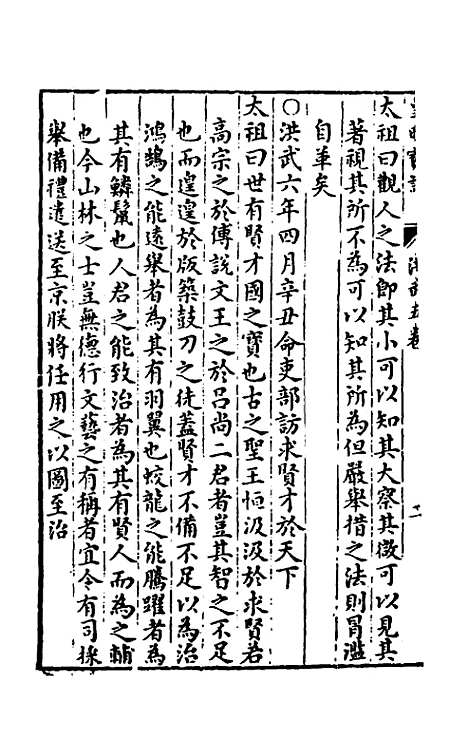 皇明寶訓 洪武五卷 十二
太祖曰觀人之法即其小可以知其大察其微可以見其
著視其所不為可以知其所為但嚴舉措之法則冒濫
自革矣
○洪武六年四月辛丑命吏部訪求賢才於天下
太祖曰世有賢才國之寶也古之聖王恒汲汲於求賢若
高宗之於傅說文王之於呂尚二君者豈其智之不足
也而遑遑於版築鼓刀之徒蓋賢才不備不足以為治
鴻鵠之能遠舉者為其有羽翼也蛟龍之能騰躍者為
其有鱗鬛也人君之能致治者為其有賢人而為之輔
也今山林之士豈無德行文藝之有稱者宜令有司採
舉備禮遣送至京朕將任用之以圖至治